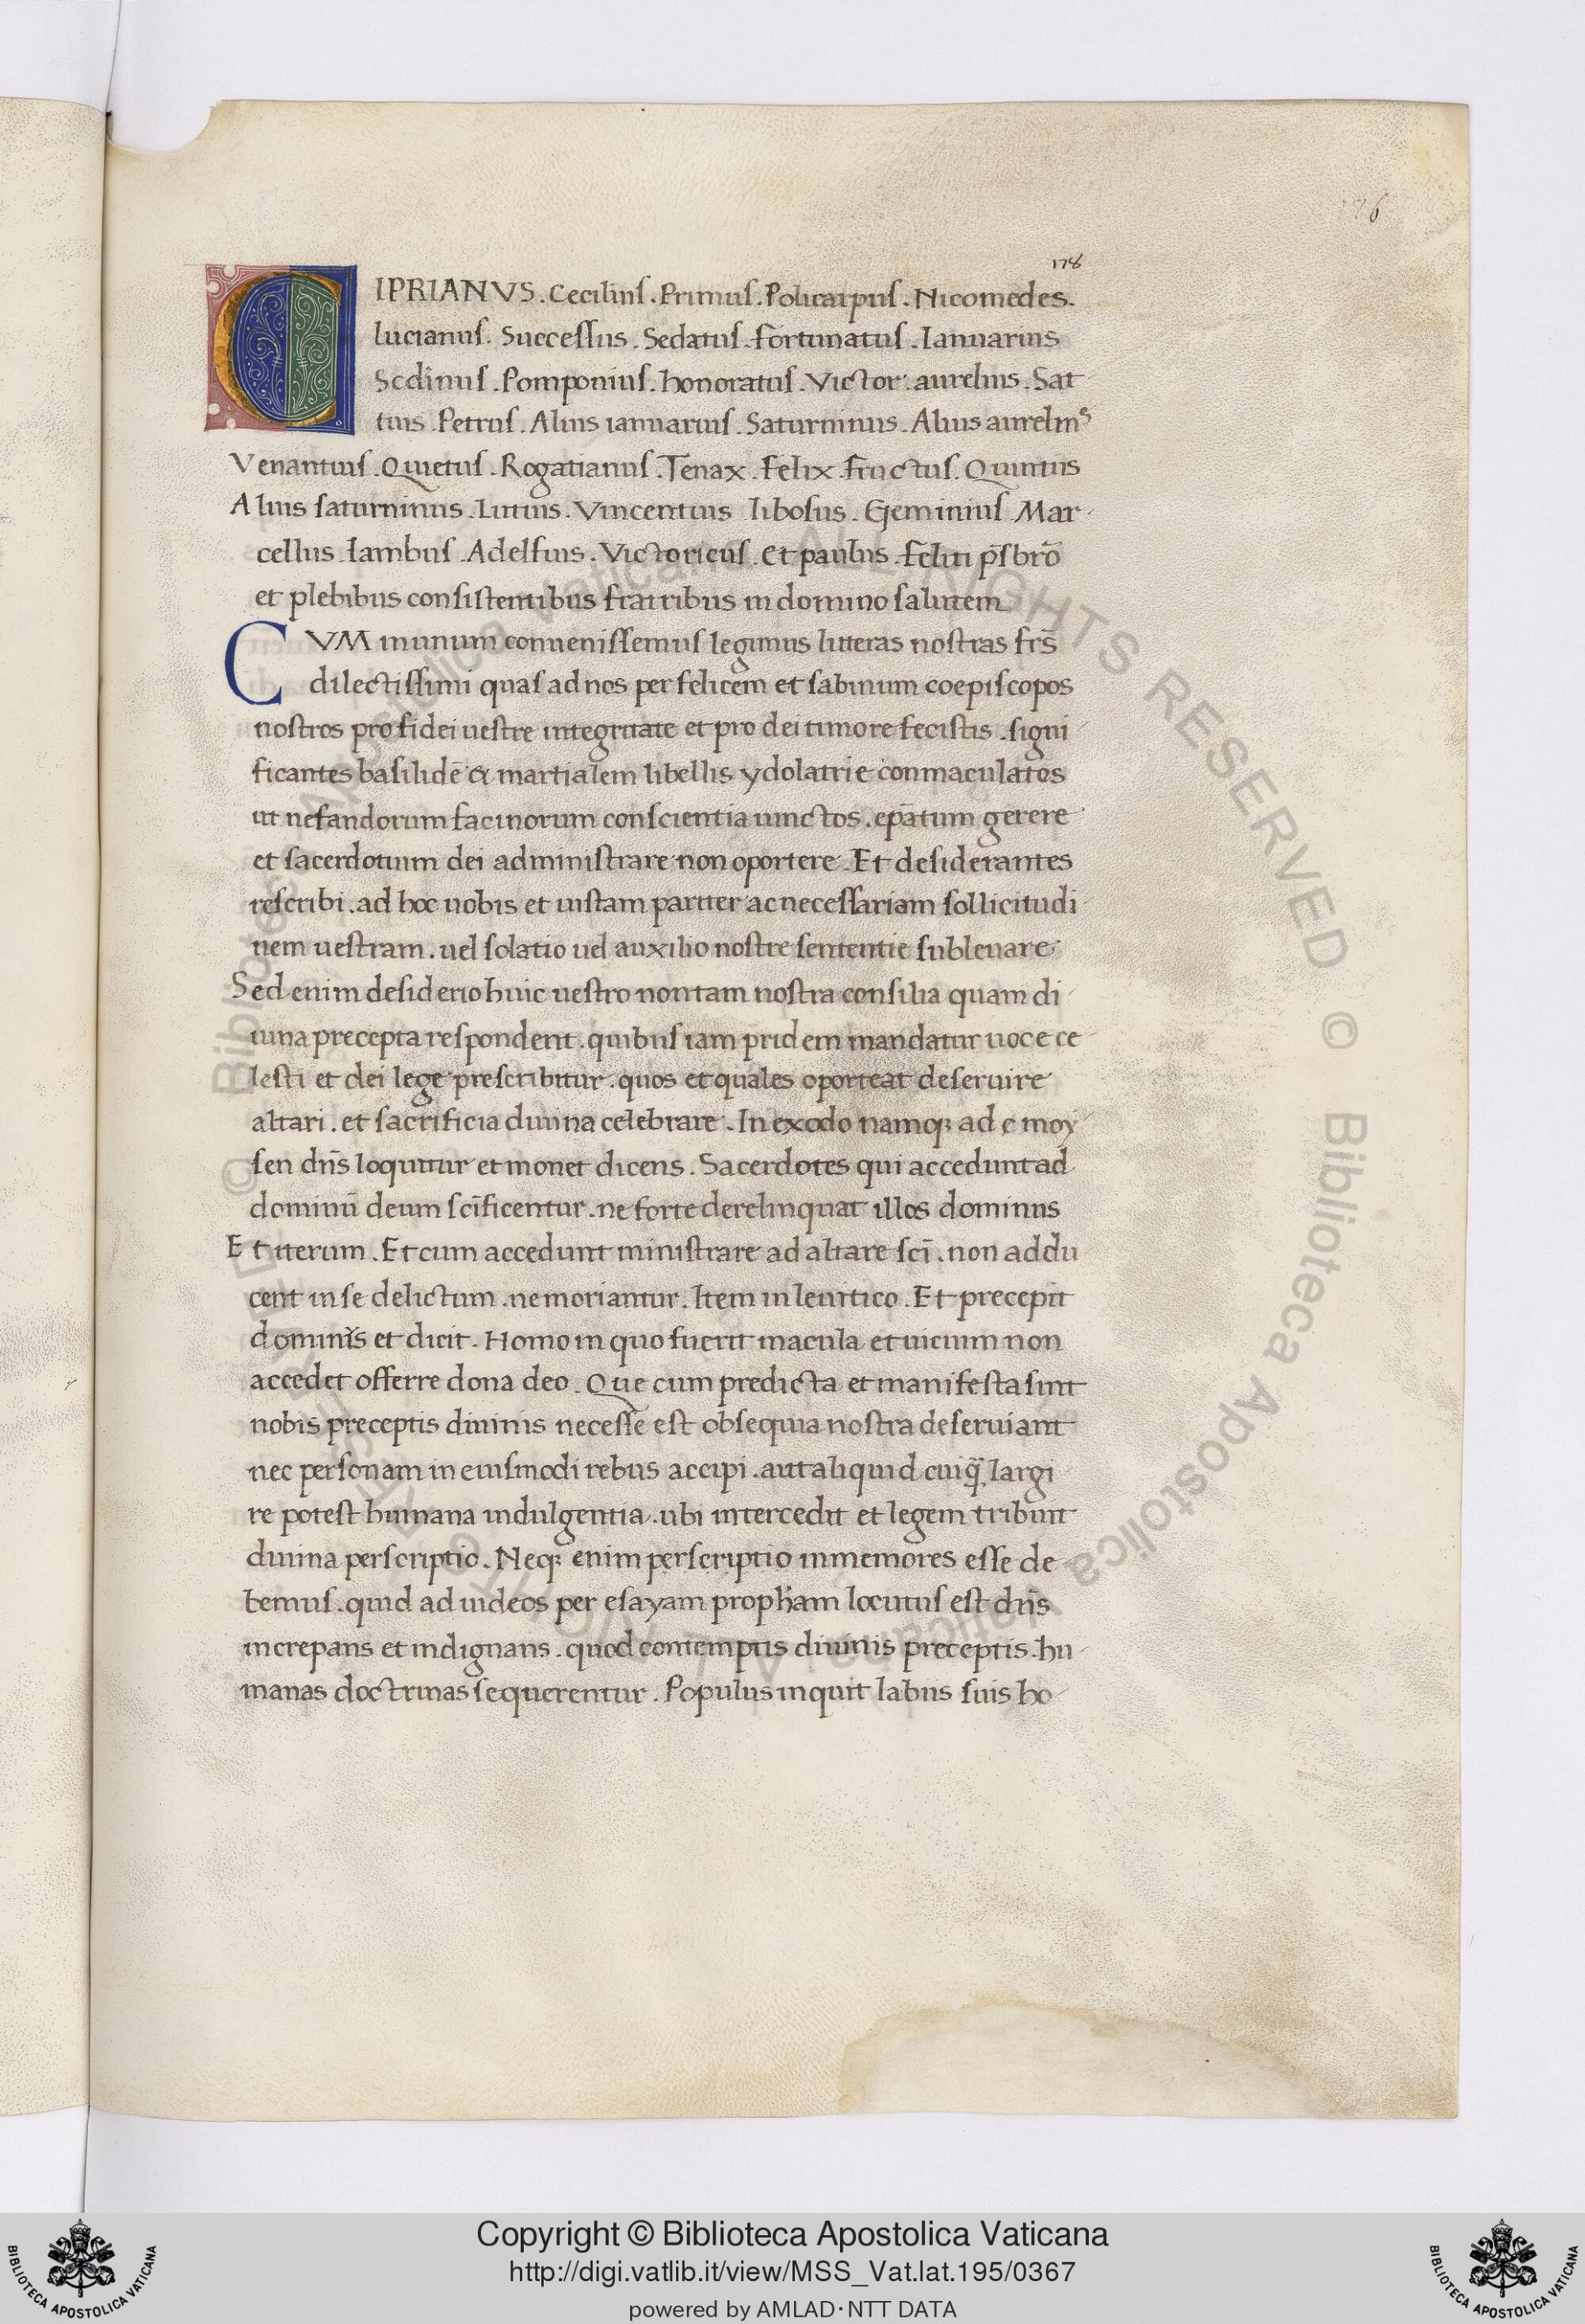 176
178
CIPRIANVS. Cecilius. Primus. Policarpus. Nicomedes.
lucianus. Successus. Sedatus. Fortunatus. Ianuarius
Scdinus. Pomponius. honoratus. Victor. aurelius. Sat
tius. Petrus. Alius ianuarius. Saturninus. Alius aureliuꝰ
Venantius. Quietus. Rogatianus. Tenax. Felix. Fructus. Quintus
Alius saturninus. Lutius. Vincentius libosus. Geminius Mar
cellus. Iambus. Adelfius. Victoricus. et paulus. Felici p̄sbrō
et plebibus consistentibus fratribus in domino salutem
CVM in unum conuenissemus legimus litteras nostras frs̄
dilectissimi quas ad nos per felicem et sabinum coepiscopos
nostros pro fidei uestre integritate et pro dei timore fecistis. signi
ficantes basilidē & martialem libellis ydolatrie conmaculatos
ut nefandorum facinorum conscientia uinctos. ep̄atum gerere
et sacerdotium dei administrare non oportere. Et desiderantes
rescribi. ad hoc uobis et iustam pariter ac necessariam sollicitudi
nem uestram. uel solatio uel auxilio nostre sententie subleuare
Sed enim desiderio huic uestro non tam nostra consilia quam di
uina precepta respondent. quibus iam pridem mandatur uoce ce
lesti et dei lege prescribitur. quos et quales oporteat deseruire
altari. et sacrificia diuina celebrare. In exodo namqꝫ ad e moy
sen dn̄s loquitur et monet dicens. Sacerdotes qui accedunt ad
dominū deum scīficentur. ne forte derelinquat illos dominus
Et iterum. Et cum accedunt ministrare ad altare scī. non addu
cent in se delictum. ne moriantur. Item in leuitico. Et precepit
dominus et dicit. Homo in quo fuerit macula et uicium non
accedet offerre dona deo. Que cum predicta et manifesta sint
nobis preceptis diuinis necesse est obsequia nostra deseruiant
nec personam in eiusmodi rebus accipi. aut aliquid cuiqꝫ largi
re potest humana indulgentia. ubi intercedit et legem tribuit
diuina perscriptio. Neqꝫ enim perscriptio inmemores esse de
bemus. quid ad iudeos per esayam proph̄am locutus est dn̄s
increpans et indignans. quod contemptis diuinis preceptis. hu
manas doctrinas sequerentur. Populus inquit labiis suis ho
Copyright © Biblioteca Apostolica Vaticana
http://digi.vatlib.it/view/MSS_Vat.lat.195/0367
powered by AMLAD·NTT DATA